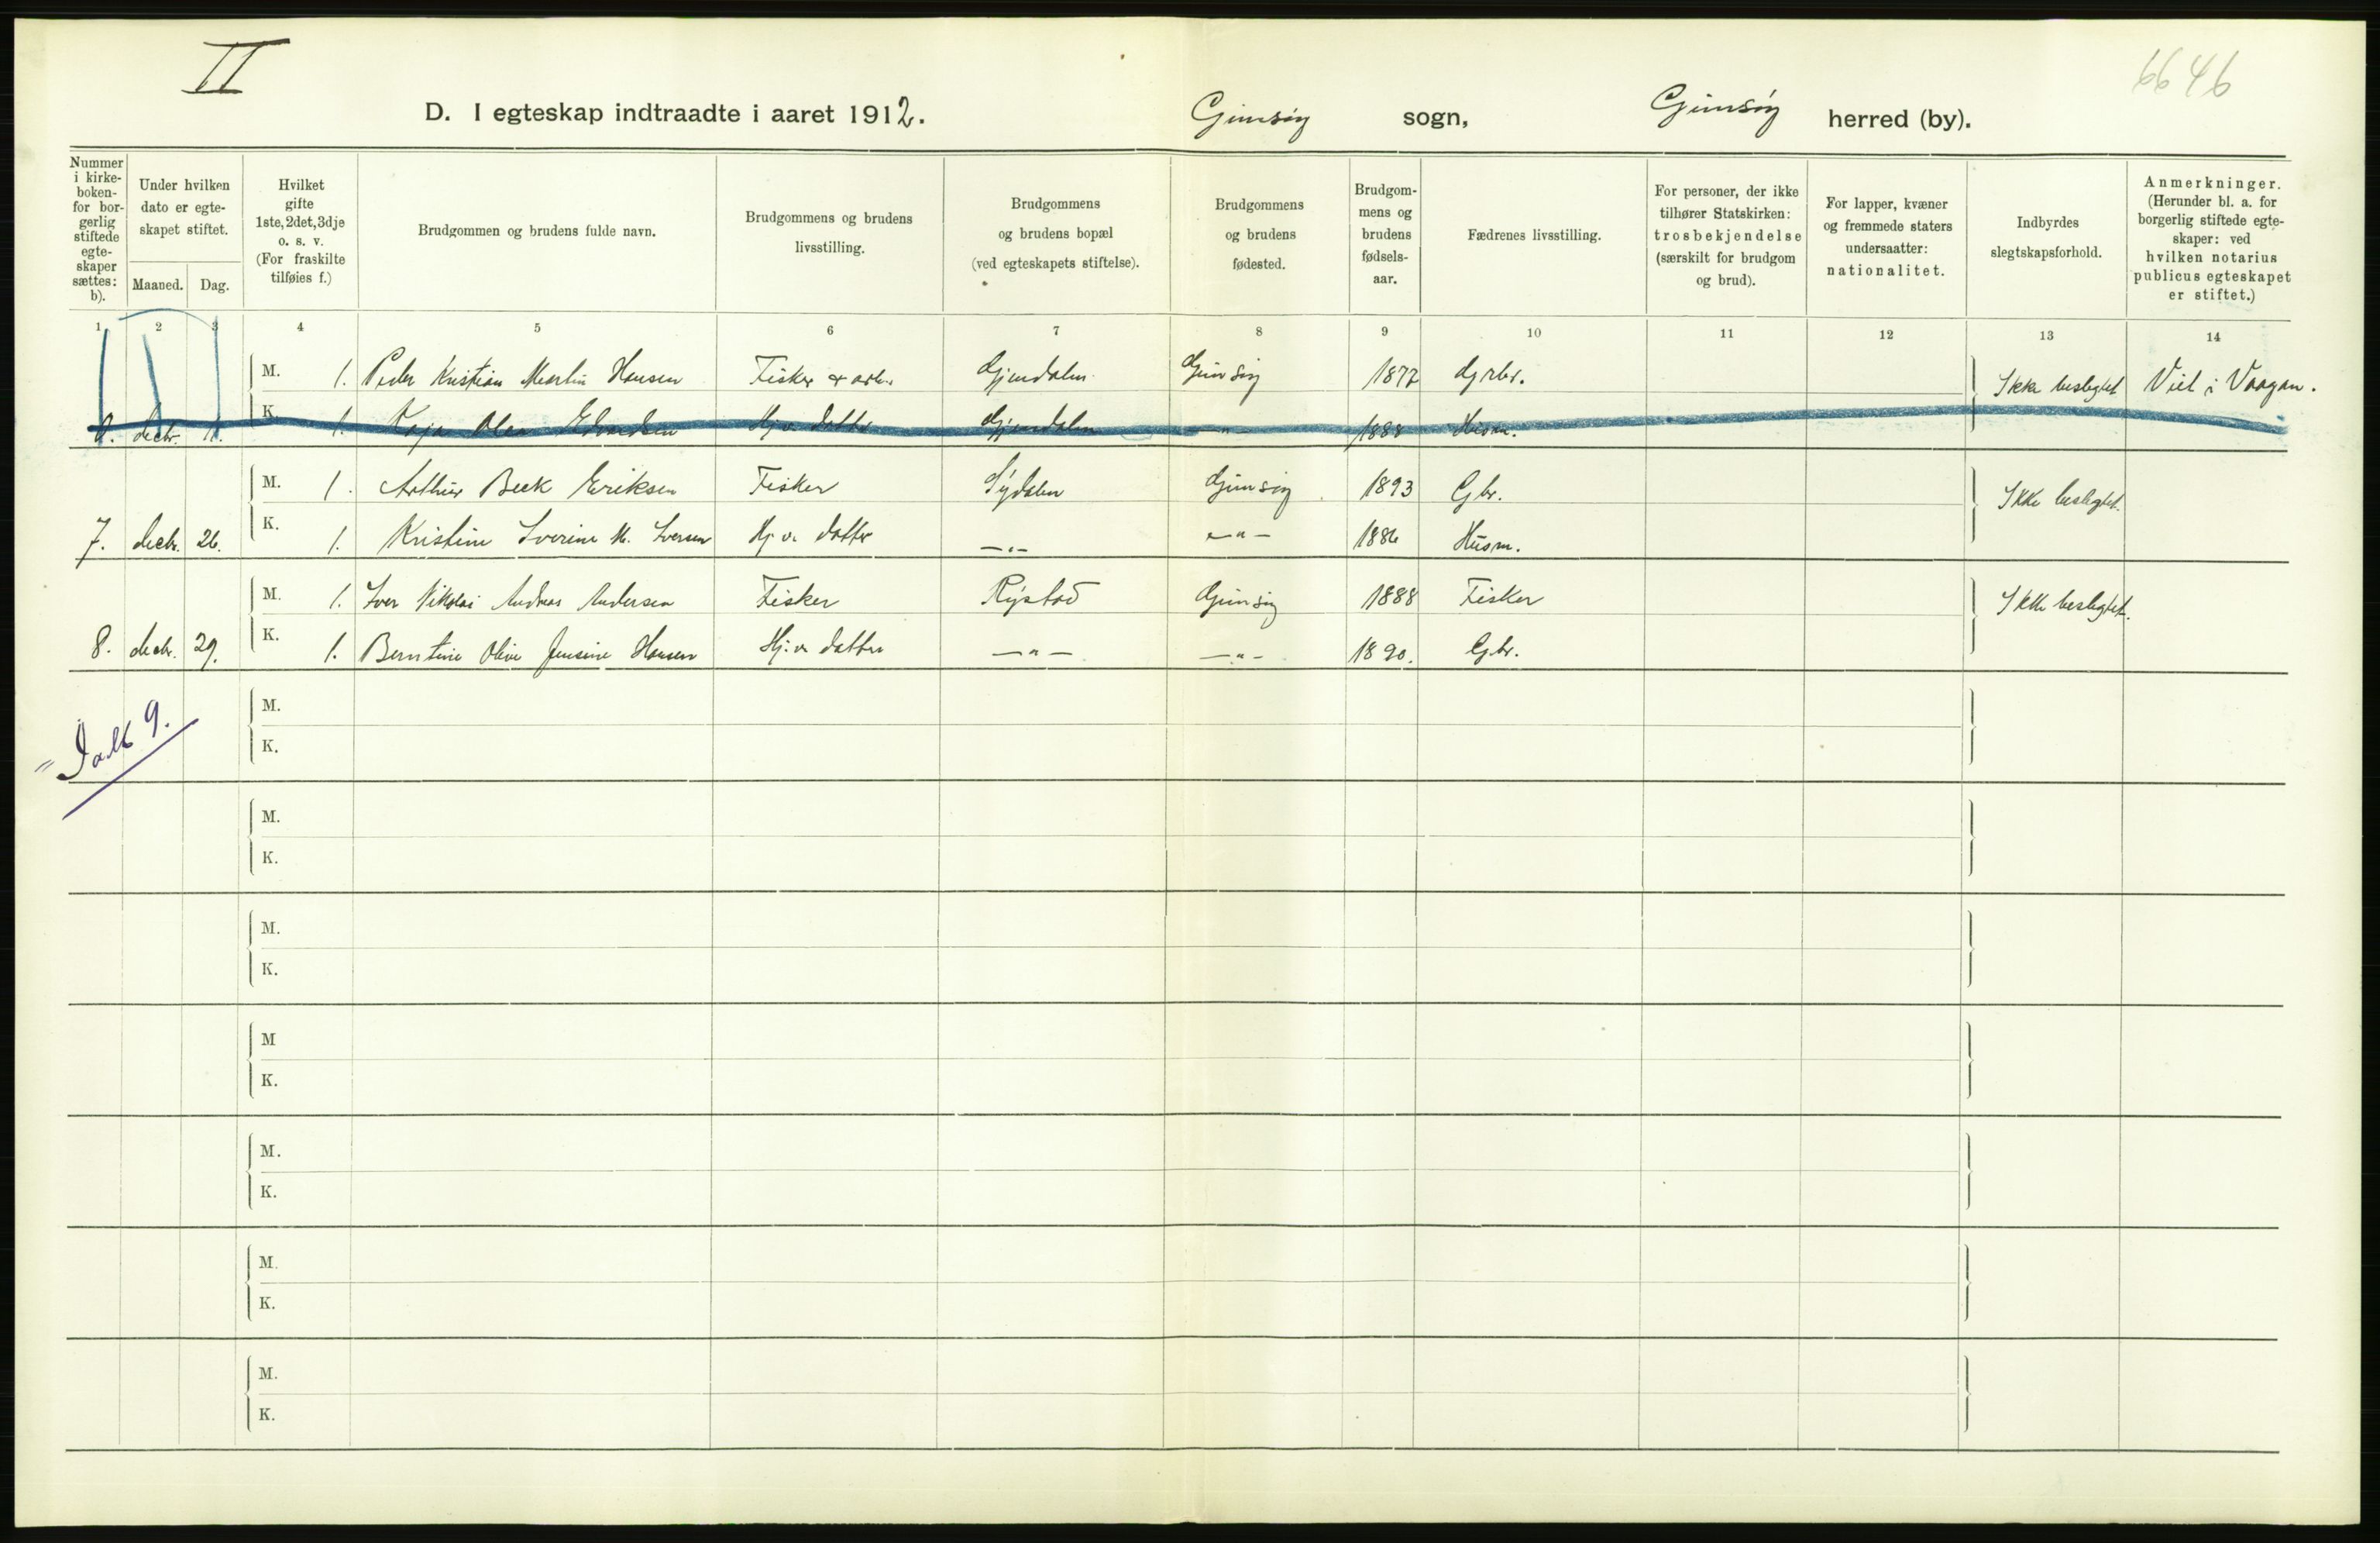 II
6646
D. I egteskap indtraadte i aaret 1912. Gimsøy sogn, Gimsøy herred (by).
Nummer i kirke-boken- for bor-gerlig stiftede egte-skaper sættes: b).
Under hvilken dato er egte-skapet stiftet.
Maaned. Dag.
Hvilket gifte 1ste, 2det, 3dje o. s. v. (For fraskilte tilføies f.)
Brudgommen og brudens fulde navn.
Brudgommens og brudens livsstilling.
Brudgommens og brudens bopæl (ved egteskapets stiftelse).
Brudgommens og brudens fødested.
Brudgom-mens og brudens fødsels-aar.
Fædrenes livsstilling.
For personer, der ikke tilhører Statskirken: trosbekjendelse (særskilt for brudgom og brud).
For lapper, kvæner og fremmede staters undersaatter: nationalitet.
Indbyrdes slegtskapsforhold.
Anmerkninger. (Herunder bl. a. for borgerlig stiftede egte-skaper: ved hvilken notarius publicus egteskapet er stiftet.)
1 2 3 4 5 6 7 8 9 10 11 12 13 14
M. 1. Peder Kristian Martin Hansen Fisker & arb. Gjendalen Gimsøy 1877 Gjrbr. Ikke beslegtet Viet i Vaagan.
decbr. K. 1. Kaja Edvardsen Hj. v. datter Gjendalen -"- 1888 Husm.
M. 1. Arthur Beck Eriksen Fisker Sydalen Gimsøy 1893 Gbr. Ikke beslegtet.
7. decbr. 26. K. 1. Kristine Iverine M. Iversen Hj. v. datter -"- -"- 1886 Husm.
M. 1. Iver Nikolai Andreas Andersen Fisker Rystad Gimsøy 1888 Fisker Ikke beslegtet.
8. decbr. 29. K. 1. Berntine Olive Jensine Hansen Hj. v. datter -"- -"- 1890. Gbr.
M.
K.
Ialt 9.
M.
K.
M.
K.
M
K.
M.
K.
M.
K.
M.
K.